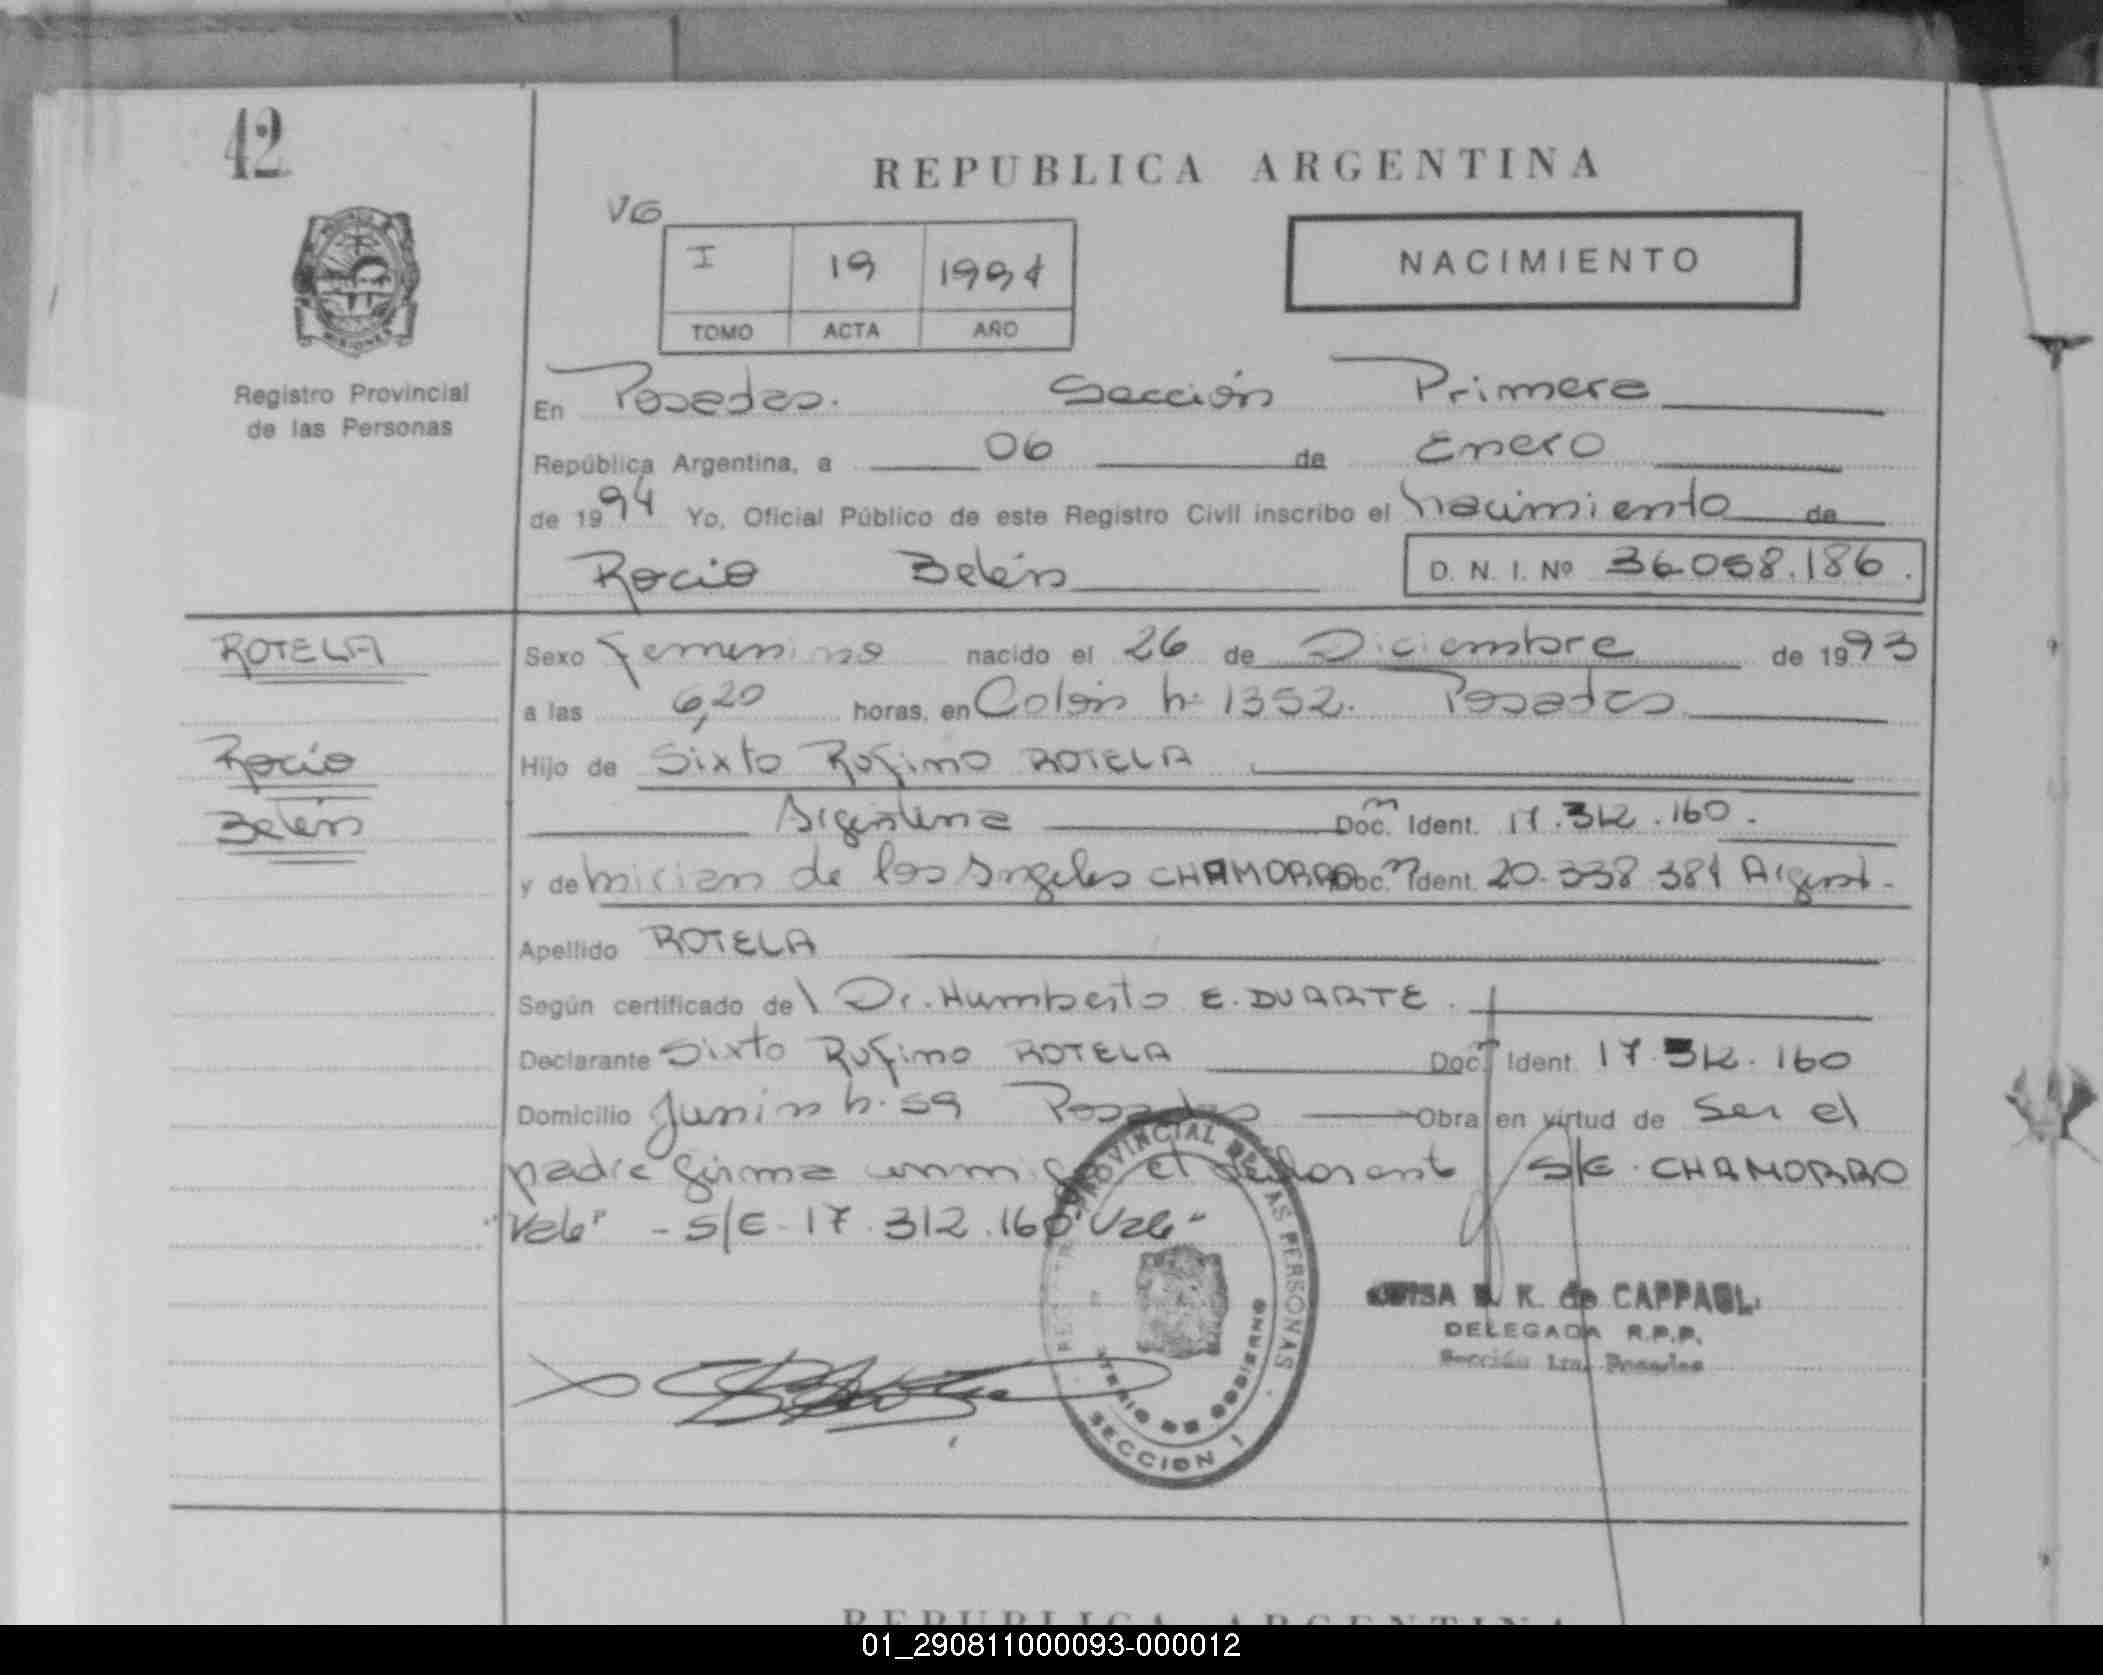 42
REPUBLICA ARGENTINA
VG
I 19 1994
TOMO ACTA AÑO
NACIMIENTO
MISIONES
Registro Provincial
de las Personas
En Posadas. Sección Primera
República Argentina, a 06 de Enero
de 1994 Yo, Oficial Público de este Registro Civil inscribo el nacimiento de
Rocio Belén D. N. I. Nº 36.058.186.
ROTELA
Sexo femenino nacido el 26 de Diciembre de 1993
a las 6,20 horas, en Colón nº 1352. Posadas
Rocío
Hijo de Sixto Rufino ROTELA
Belén
Argentina Doc. Ident. 17.312.160.
y de Mirian de los Angeles CHAMORRO Doc. Ident. 20.338.384 Argent.
Apellido ROTELA
Según certificado del Dr. Humberto E. DUARTE.
Declarante Sixto Rufino ROTELA Doc. Ident. 17.312.160
Domicilio Junin n. 59 Posadas Obra en virtud de ser el
padre firma el S/E. CHAMORRO
"Vale" - S/E - 17.312.160 "Vale"
REGISTRO PROVINCIAL DE LAS PERSONAS
MINISTERIO DE GOBIERNO
SECCION I
K. de CAPPAGLI
DELEGADA R.P.P.
Sección 1ra. Posadas
REPUBLICA ARGENTINA
01_290811000093-000012